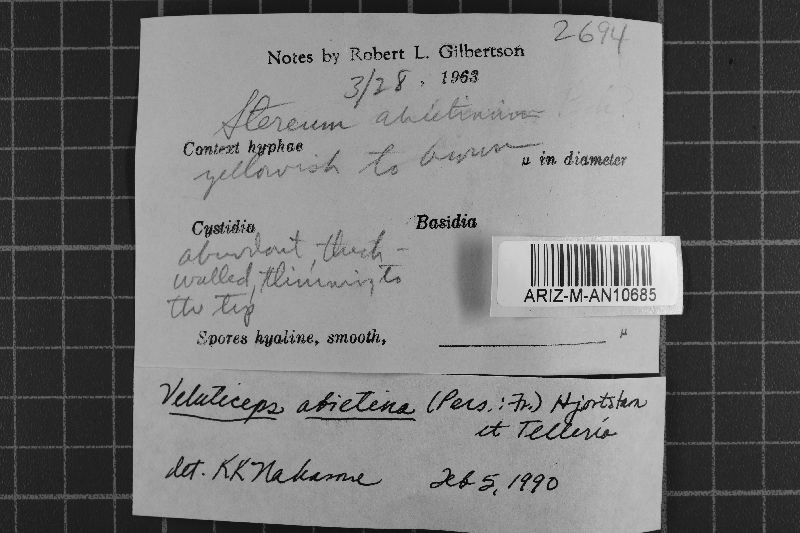 2694
Notes by Robert L. Gilbertson
3/28, 1963
Stereum abietinum
Context hyphae
yellowish to brown μ in diameter
Cystidia Basidia
abundant, thick-
walled, thinning to
the tip
ARIZ-M-AN10685
Spores hyaline, smooth, μ
Veluticeps abietina (Pers.: Fr.) Hjortstam
et Tellería
det. KK Nakasone Feb 5, 1990